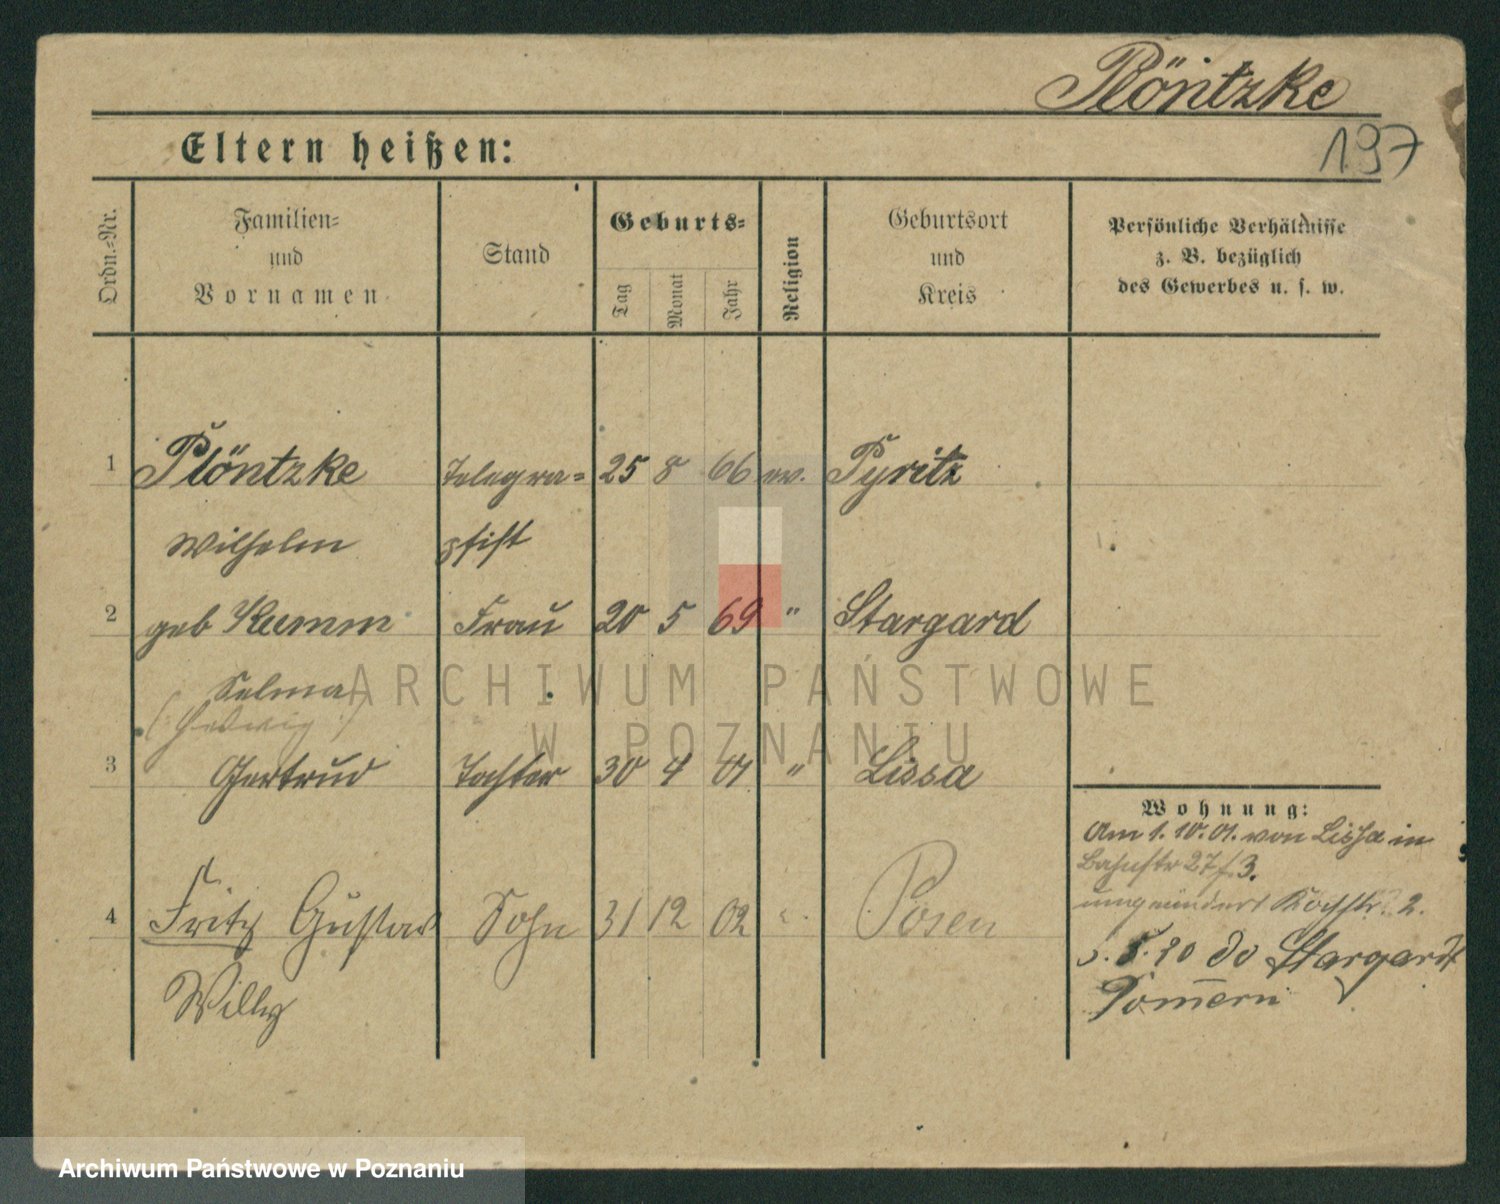 Plöntzke
197
Eltern heißen:
Ordn.-Nr.
Familien-
und
Vornamen
Stand
Geburts-
Tag
Monat
Jahr
Religion
Geburtsort
und
Kreis
Persönliche Verhältnisse
z. B. bezüglich
des Gewerbes u. s. w.
1 Plöntzke Telegra- 25 8 66 ev. Pyritz
Wilhelm phist
2 geb Kumm Frau 20 5 69 " Stargard
Selma
(Hedwig)
3 Gertrud Tochter 30 4 01 " Lissa
4 Fritz Gustav Sohn 31 12 02 Posen
Willy
Wohnung:
Am 1. 10. 01. von Lissa in
Bahnstr 27/3.
2.
20 do Stargard
Pomern
ARCHIWUM PAŃSTWOWE
W POZNANIU
Archiwum Państwowe w Poznaniu